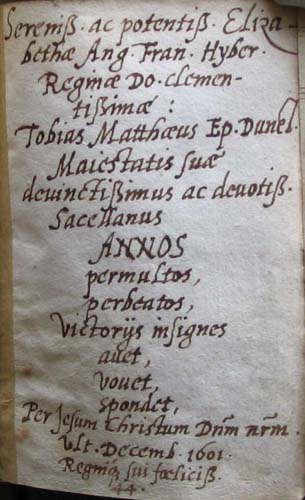 Sereniß. ac potentiß. Eliza-
bethæ Ang. Fran. Hyber.
Reginæ Do. clemen-
tißimæ:
Tobias Matthæus Ep. Dunel.
Maiestatis suæ
devinctißimus ac devotiß.
Sacellanus
ANNOS
permultos,
perbeatos,
victorijs insignes
auet,
vouet,
spondet,
Per Jesum Christum Dn̄m nr̄m.
Vlt. Decemb. 1601.
Regniq́ sui fœliciß.
44.